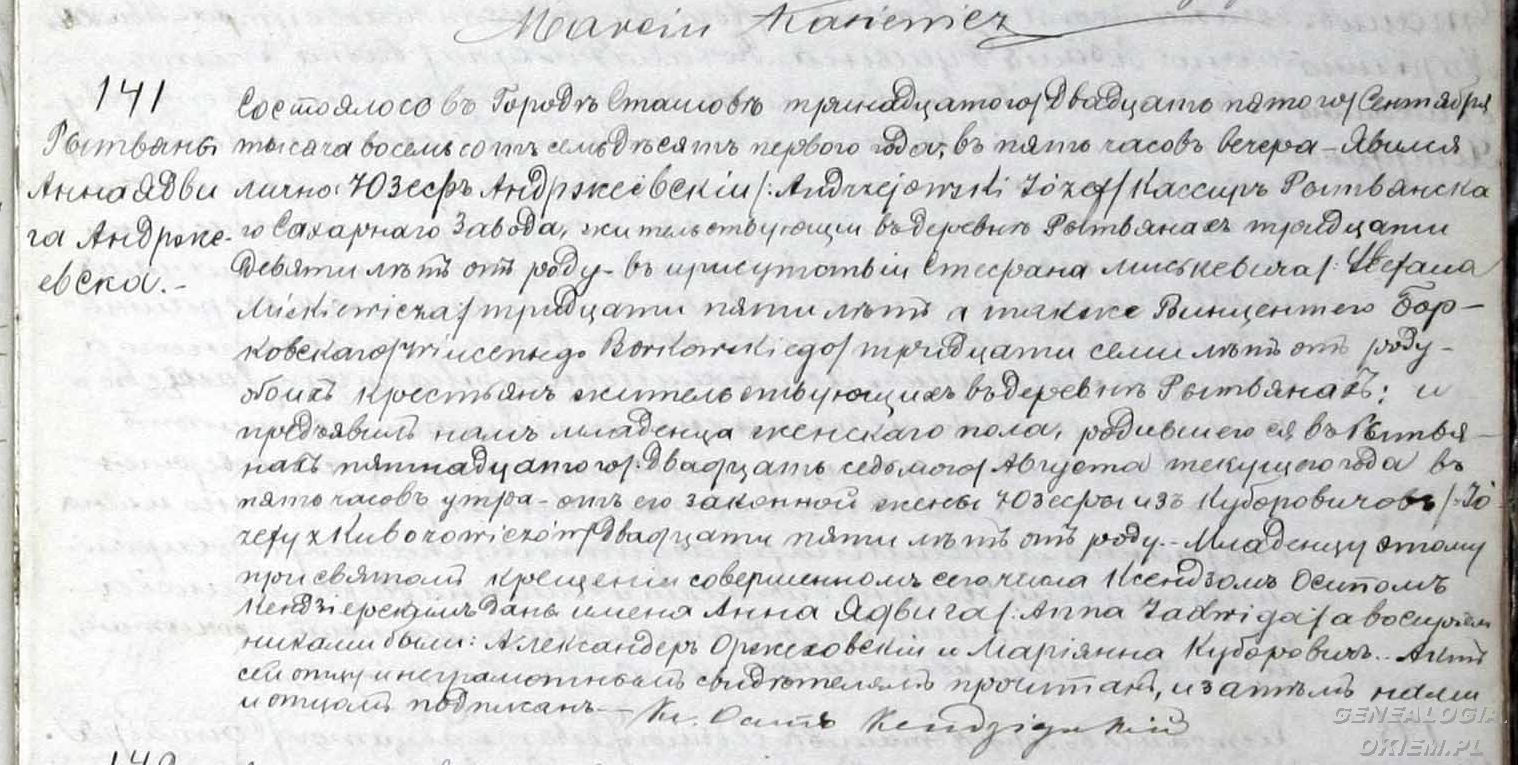 Marcin Kasiewicz
141
Рытвяны
Анна Ядви
га Андрже-
евска.-
Состоялось въ Городѣ Сташовѣ тринадцатого/двадцать пятого/Сентября
тысяча восемьсотъ семьдѣсятъ первого года, въ пять часовъ вечера - Явился
лично Юзефъ Андржеевскiй /: Andrzejowski Józef/ Кассиръ Рытвянска
го Сахарнаго Завода, жительствующiй въ деревнѣ Рытвянахъ тридцати
девяти лѣтъ отъ роду - въ присутствiи Стефана Миськевича /: Stefana
Miśkiewicza/ тридцати пяти лѣтъ а также Винцентего Бор-
ковскаго /Wincentego Borkowskiego/ тридцати семи лѣтъ отъ роду -
обоихъ крестьянъ жительствующихъ въ деревнѣ Рытвянахъ; и
предъявилъ намъ младенца женскаго пола, родившегося въ Рытвя-
нахъ пятнадцатого/:двадцать седьмого/ Августа текущего года въ
пять часовъ утра - отъ его законной жены Юзефы изъ Куборовичовъ /: Jó
zefy z Kuborowiczów/ двадцати пяти лѣтъ отъ роду. - Младенцу этому
при святомъ крещенiи совершенномъ сего числа Ксендзомъ Осипомъ
Кендзiерскимъ даны имена Анна Ядвига /: Anna Jadwiga/ а воспрiем
никами были: Александеръ Оржеховскiй и Марiянна Куборовичъ.. Актъ
сей отцу и неграмотнымъ свидѣтелямъ прочитанъ, и затѣмъ нами
и отцомъ подписанъ. -
Кс. Осипъ
GENEALOGIA
OKIEM.PL